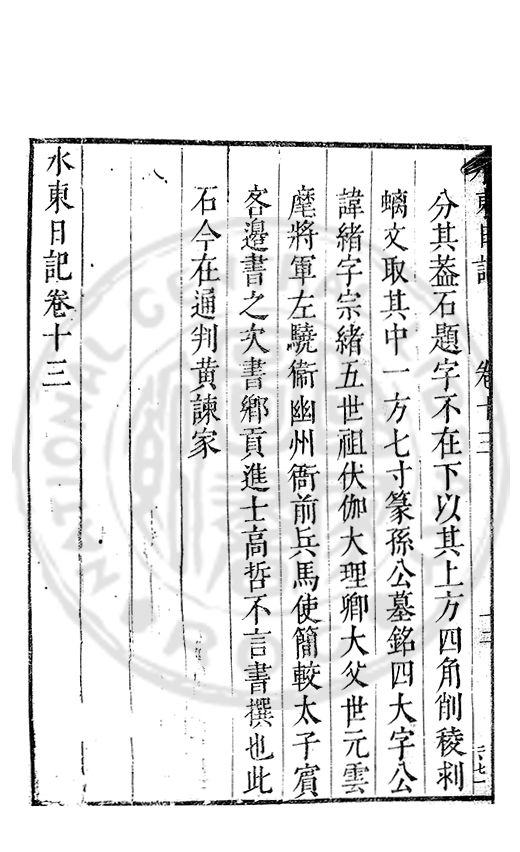 水東日記 卷十三
分其葢石題字不在下以其上方四角削稜刹
螭文取其中一方七寸篆孫公墓銘四大字公
諱緒字宗緒五世祖伏伽大理卿大父世元雲
麾將軍左驍衞幽州衙前兵馬使簡較太子賓
客邊書之次書鄉貢進士高哲不言書撰也此
石今在通判黄諫家
水東日記卷十三